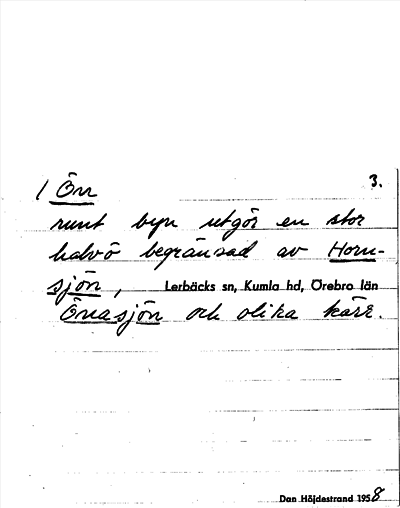 / Örr 3.
runt byn utgör en stor
halvö begränsad av Horn-
sjön, Lerbäcks sn, Kumla hd, Örebro län
Örasjön och olika kärr.
Dan Höjdestrand 1958